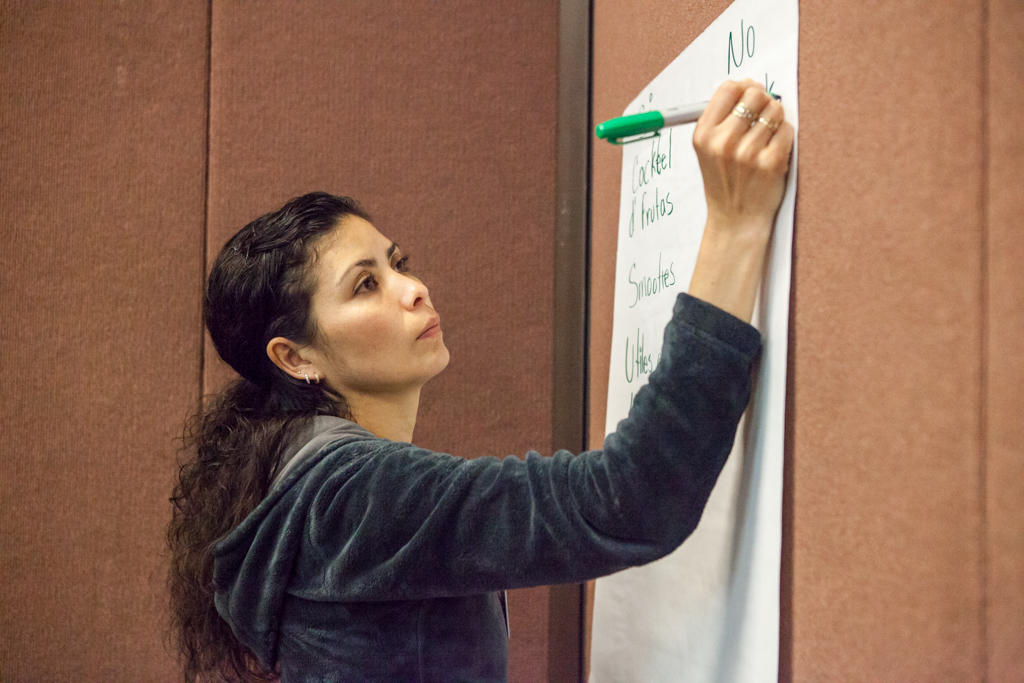 No
Cocktel
d' frutas
Smooties
Utiles